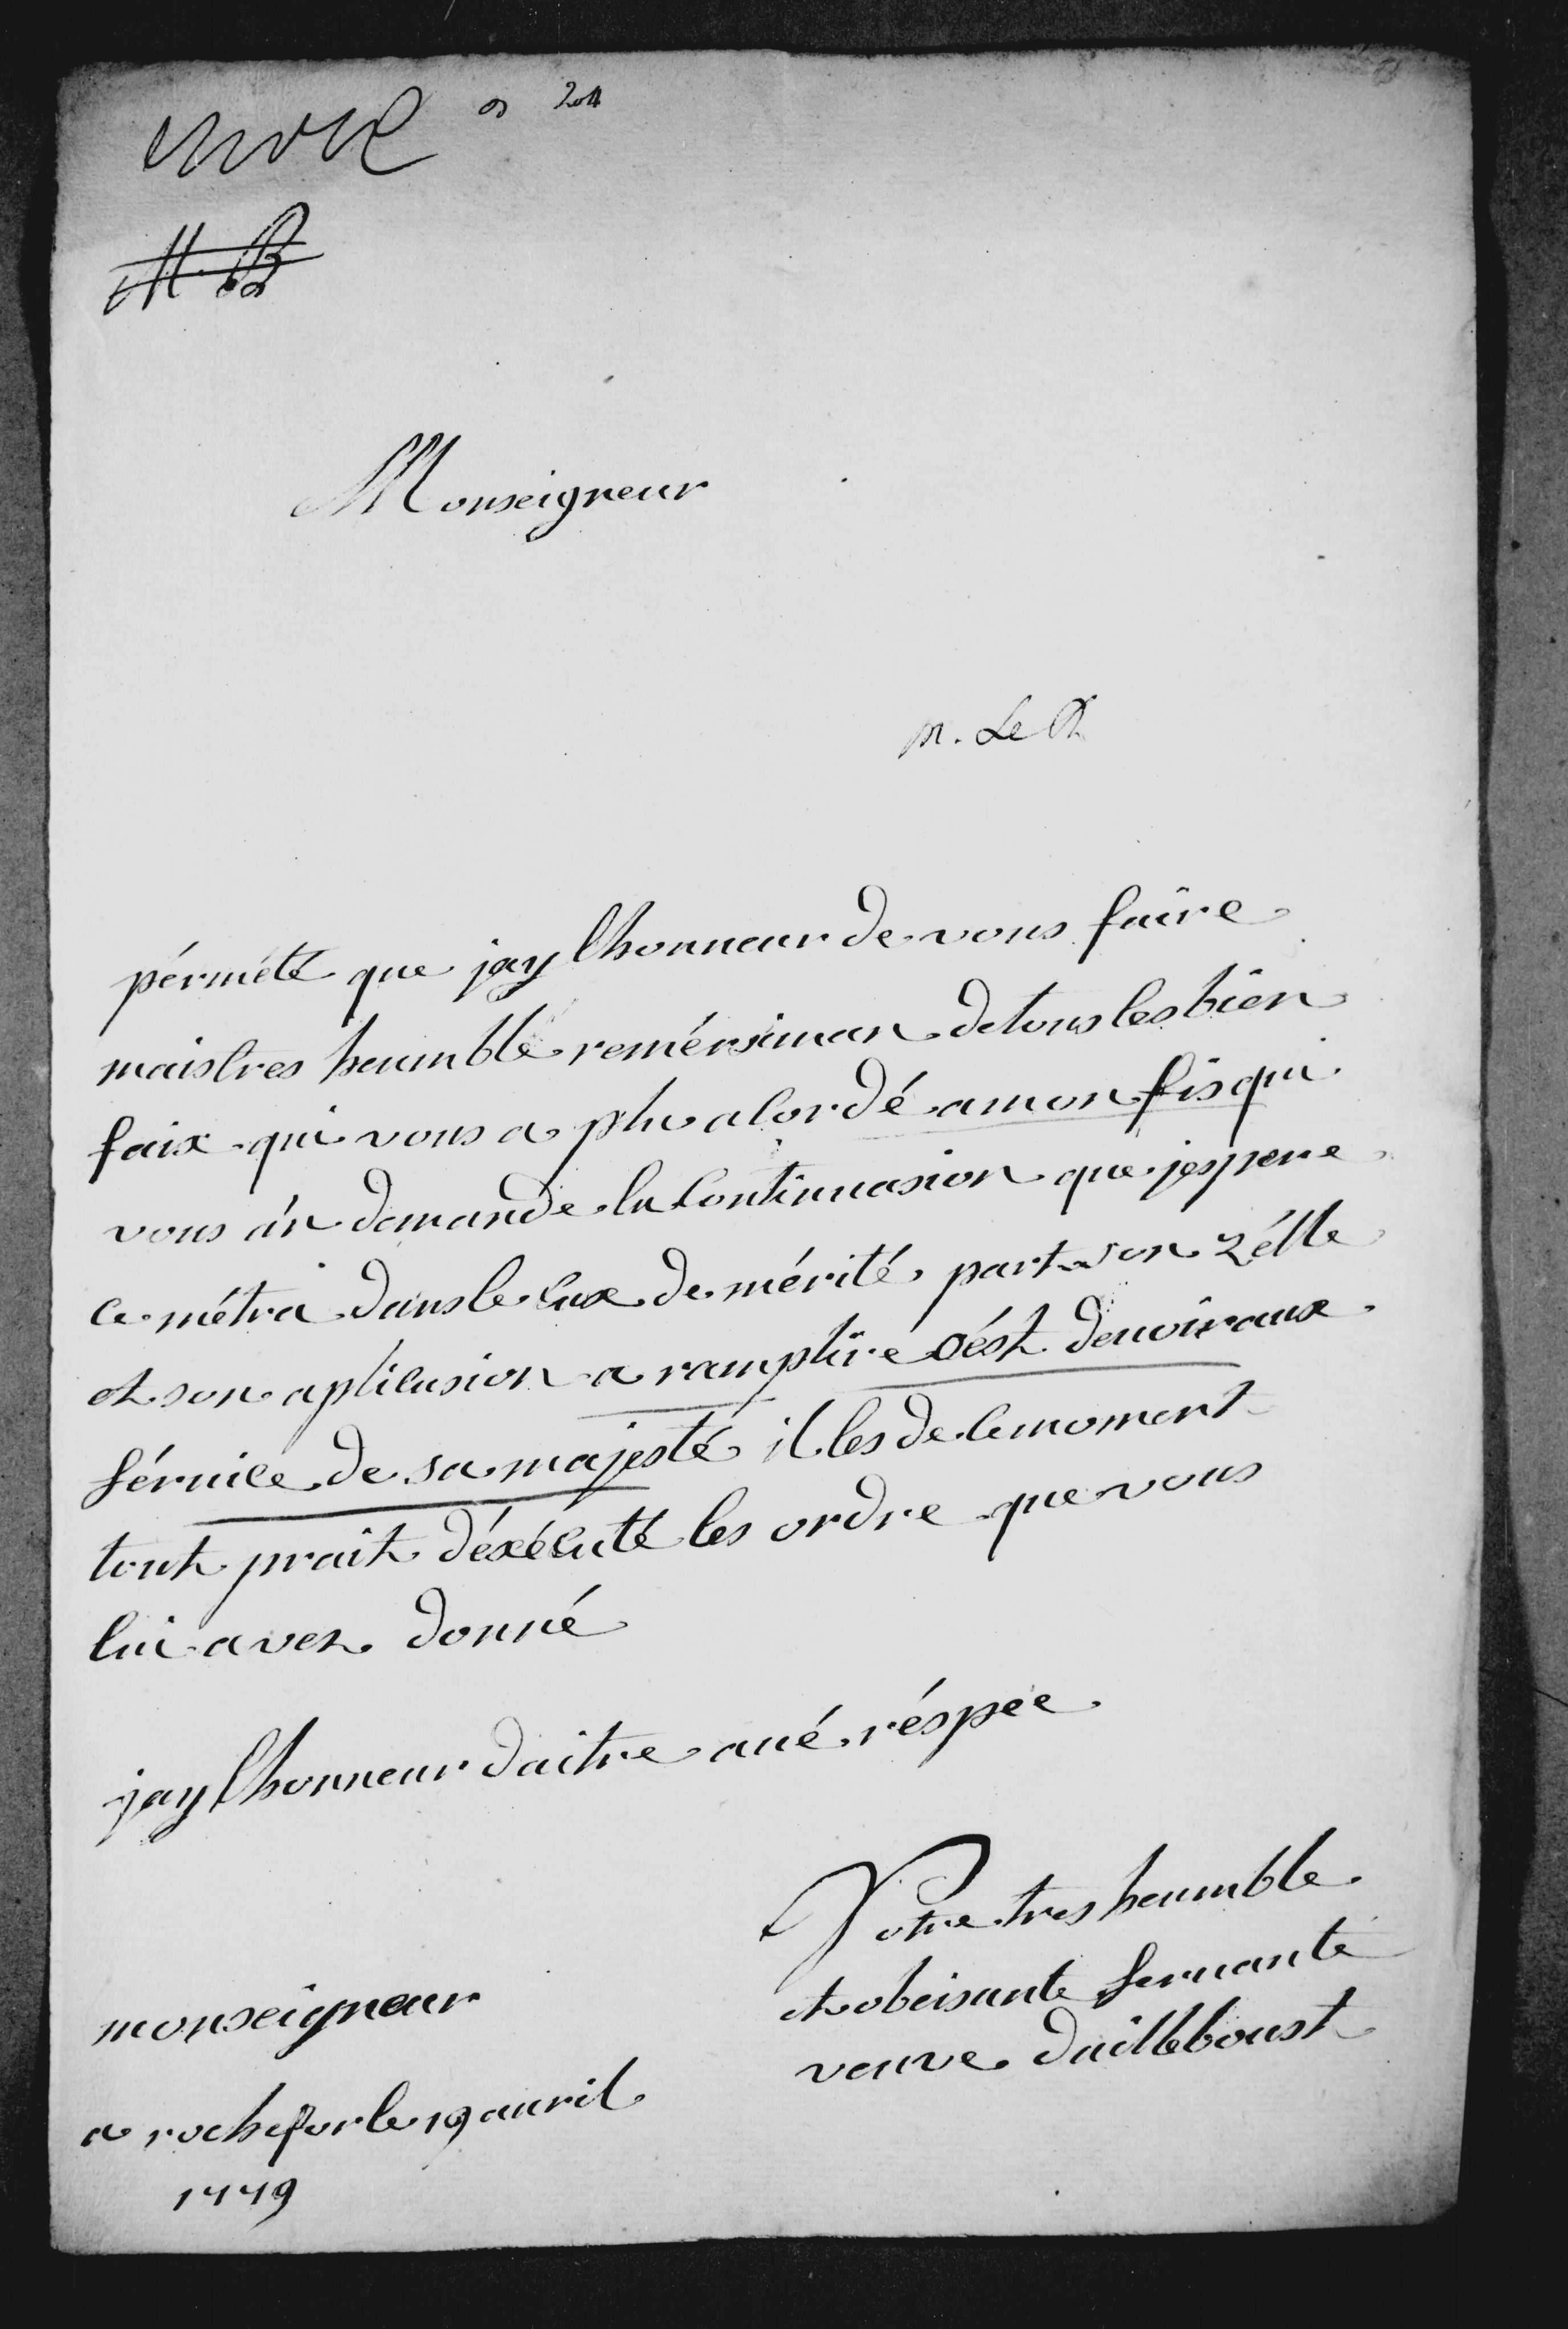 204
M. B
Monseigneur
M. Le R
pérmété que jay lhonneur de vous faîre
maistres heumble remérsiman de tous les bien
faix qui vous a plu acordé a mon fis qui
vous án demande la Continuasion que jespere
ce métra dans le cax de mérité part son zélle
et son aplicasion a ramplire sést devoir aux
sérvice de sa majesté il les de ce moment
tout prait déxécuté les ordre que vous
lui avez donné
jay lhonneur daitre avé réspec
Votre tres heumble
monseigneur
et obeisante servante
veuve dailleboust
a rochefor le 19 avril
1779